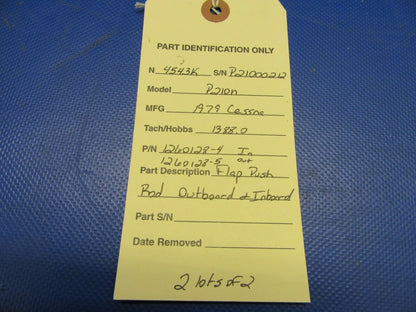 PART IDENTIFICATION ONLY
N 4543K S/N P21000212
Model P210N
MFG 1979 Cessna
Tach/Hobbs 1388.0
P/N 1260128-4 In
1260128-5 out
Part Description Flap Push
Rod Outboard & Inboard
Part S/N
Date Removed
2 lots of 2